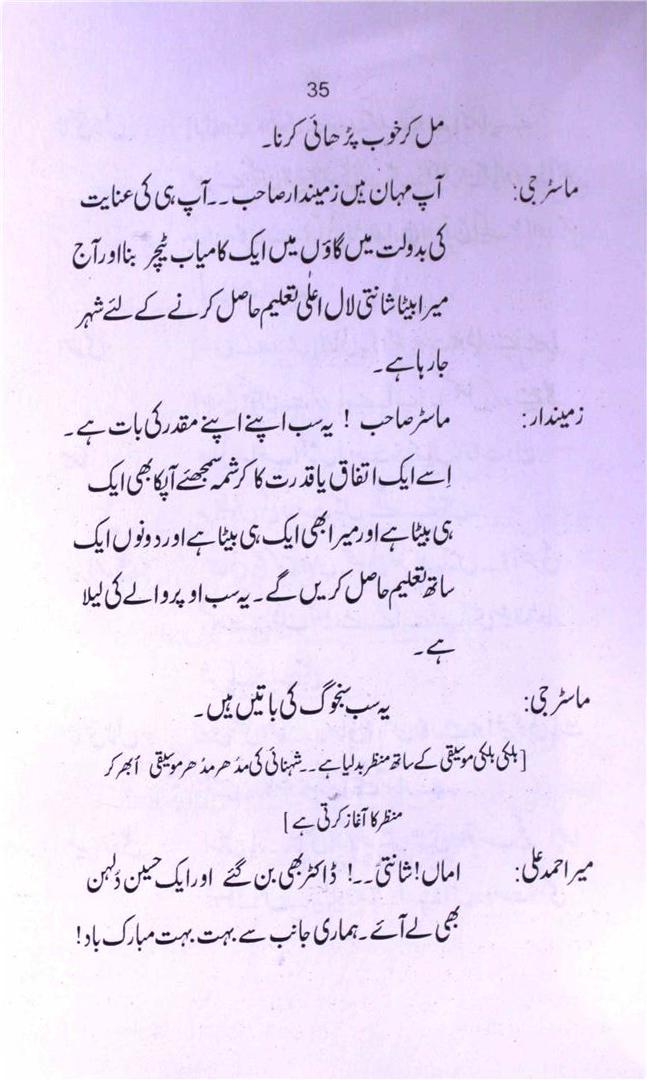 35
مل کر خوب پڑھائی کرنا۔
ماسٹر جی: آپ مہان ہیں زمیندار صاحب۔۔آپ ہی کی عنایت
کی بدولت میں گاؤں میں ایک کامیاب ٹیچر بنا اور آج
میرا بیٹا شانتی لال اعلٰی تعلیم حاصل کرنے کے لئے شہر
جارہا ہے۔
زمیندار: ماسٹر صاحب ! یہ سب اپنے اپنے مقدر کی بات ہے۔
اِسے ایک اتفاق یا قدرت کا کرشمہ سمجھئے آپکا بھی ایک
ہی بیٹا ہے اور میرا بھی ایک ہی بیٹا ہے اور دونوں ایک
ساتھ تعلیم حاصل کریں گے۔ یہ سب اوپر والے کی لیلا
ہے۔
ماسٹر جی: یہ سب سنجوگ کی باتیں ہیں۔
[ہلکی ہلکی موسیقی کے ساتھ منظر بدلیا ہے۔۔شہنائی کی مدُھر مدُھر موسیقی اُبھر کر
منظر کا آغاز کرتی ہے]
میر احمد علی: اماں! شانتی۔۔! ڈاکٹر بھی بن گئے اور ایک حسین دُلہن
بھی لے آئے۔ ہماری جانب سے بہت بہت مبارک باد!